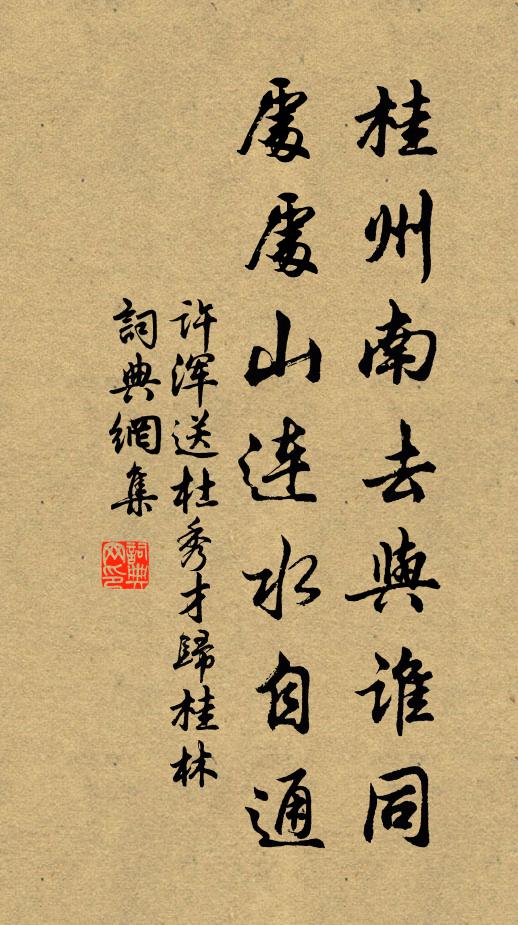 桂州南去與誰同
處處山連水自通
许浑送杜秀才歸桂林
詞典網集
詞典网印